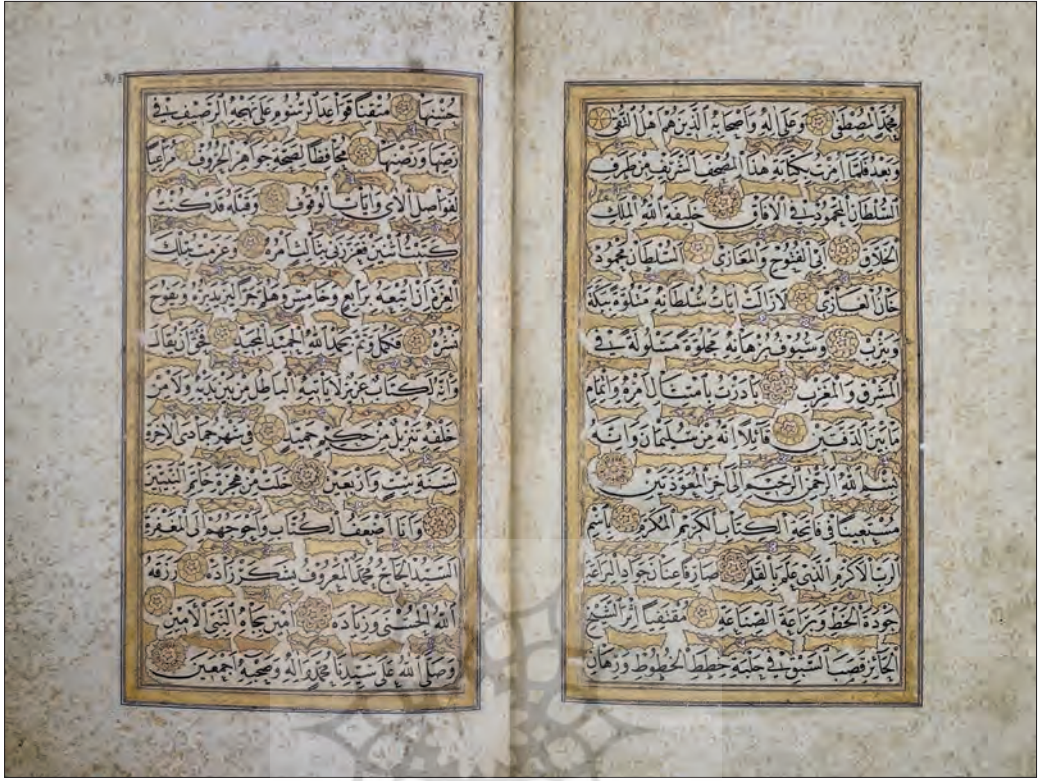 محمد المصطفى وعلى اله واصحابه الذين هم اهل التقى
وبعد فلما امرت بكتابة هذا المصحف الشريف من طرف
السلطان المحمود في الافاق خليفة الله الملك
الخلاق ابي الفتوح والمغازى السلطان محمود
خان الغازى لازالت ايات سلطانه متلوة بمكة
ويثرب وسيوف برهانه مجلوة مسلولة في
المشرق والمغرب بادرت بامتثال امره واتمام
ما بين الدفتين قائلا انه من سليمان وانه
بسم الله الرحمن الرحيم الى اخر المعوذتين
مستعينا في فاتحة الكتاب الكريم المكرم باسم
الرب الاكرم الذى علم بالقلم صارفا عنان جواد البراعة
جودة الخط وبراعة الصناعة مقتفيا اثر الشيخ
الحائز قصبا السبق في حلبة خطط الخطوط ورهان
حسنها متقنا قواعد الرسوم على نهجه الرصيف في
محافظا لصحة جواهر الحروف مراعيا
لفواصل الاى وايات الوقوف وقبله قد كنت
كتبت اثنين فعززنى بثالث امره وعزمت
العزم ان اتبعه برابع وخامس وهلم جرا ليزيد بره ويفوح
نشره فكمل وتم بحمد الله الحميد المجيد ان يقال
وانه لكتاب عزيز لا ياتيه الباطل من بين يديه ولا من
خلفه تنزيل من حكيم حميد في شهر جمادى الاخرة
لسنة ست واربعين خلت من هجرة خاتم النبيين
وانا اضعف الكتاب واحوجهم الى المغفرة
السيد الحاج محمد المعروف بشكرزاده رزقه
الله الحسنى وزيادة امين بجاه النبي الامين
وصلى الله على سيدنا محمد واله وصحبه اجمعين